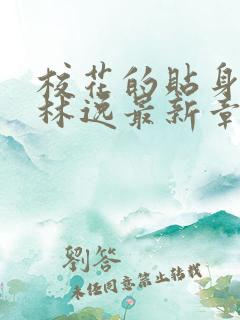 校花的贴身
林逸最新章
劉答
未经同意禁止转载